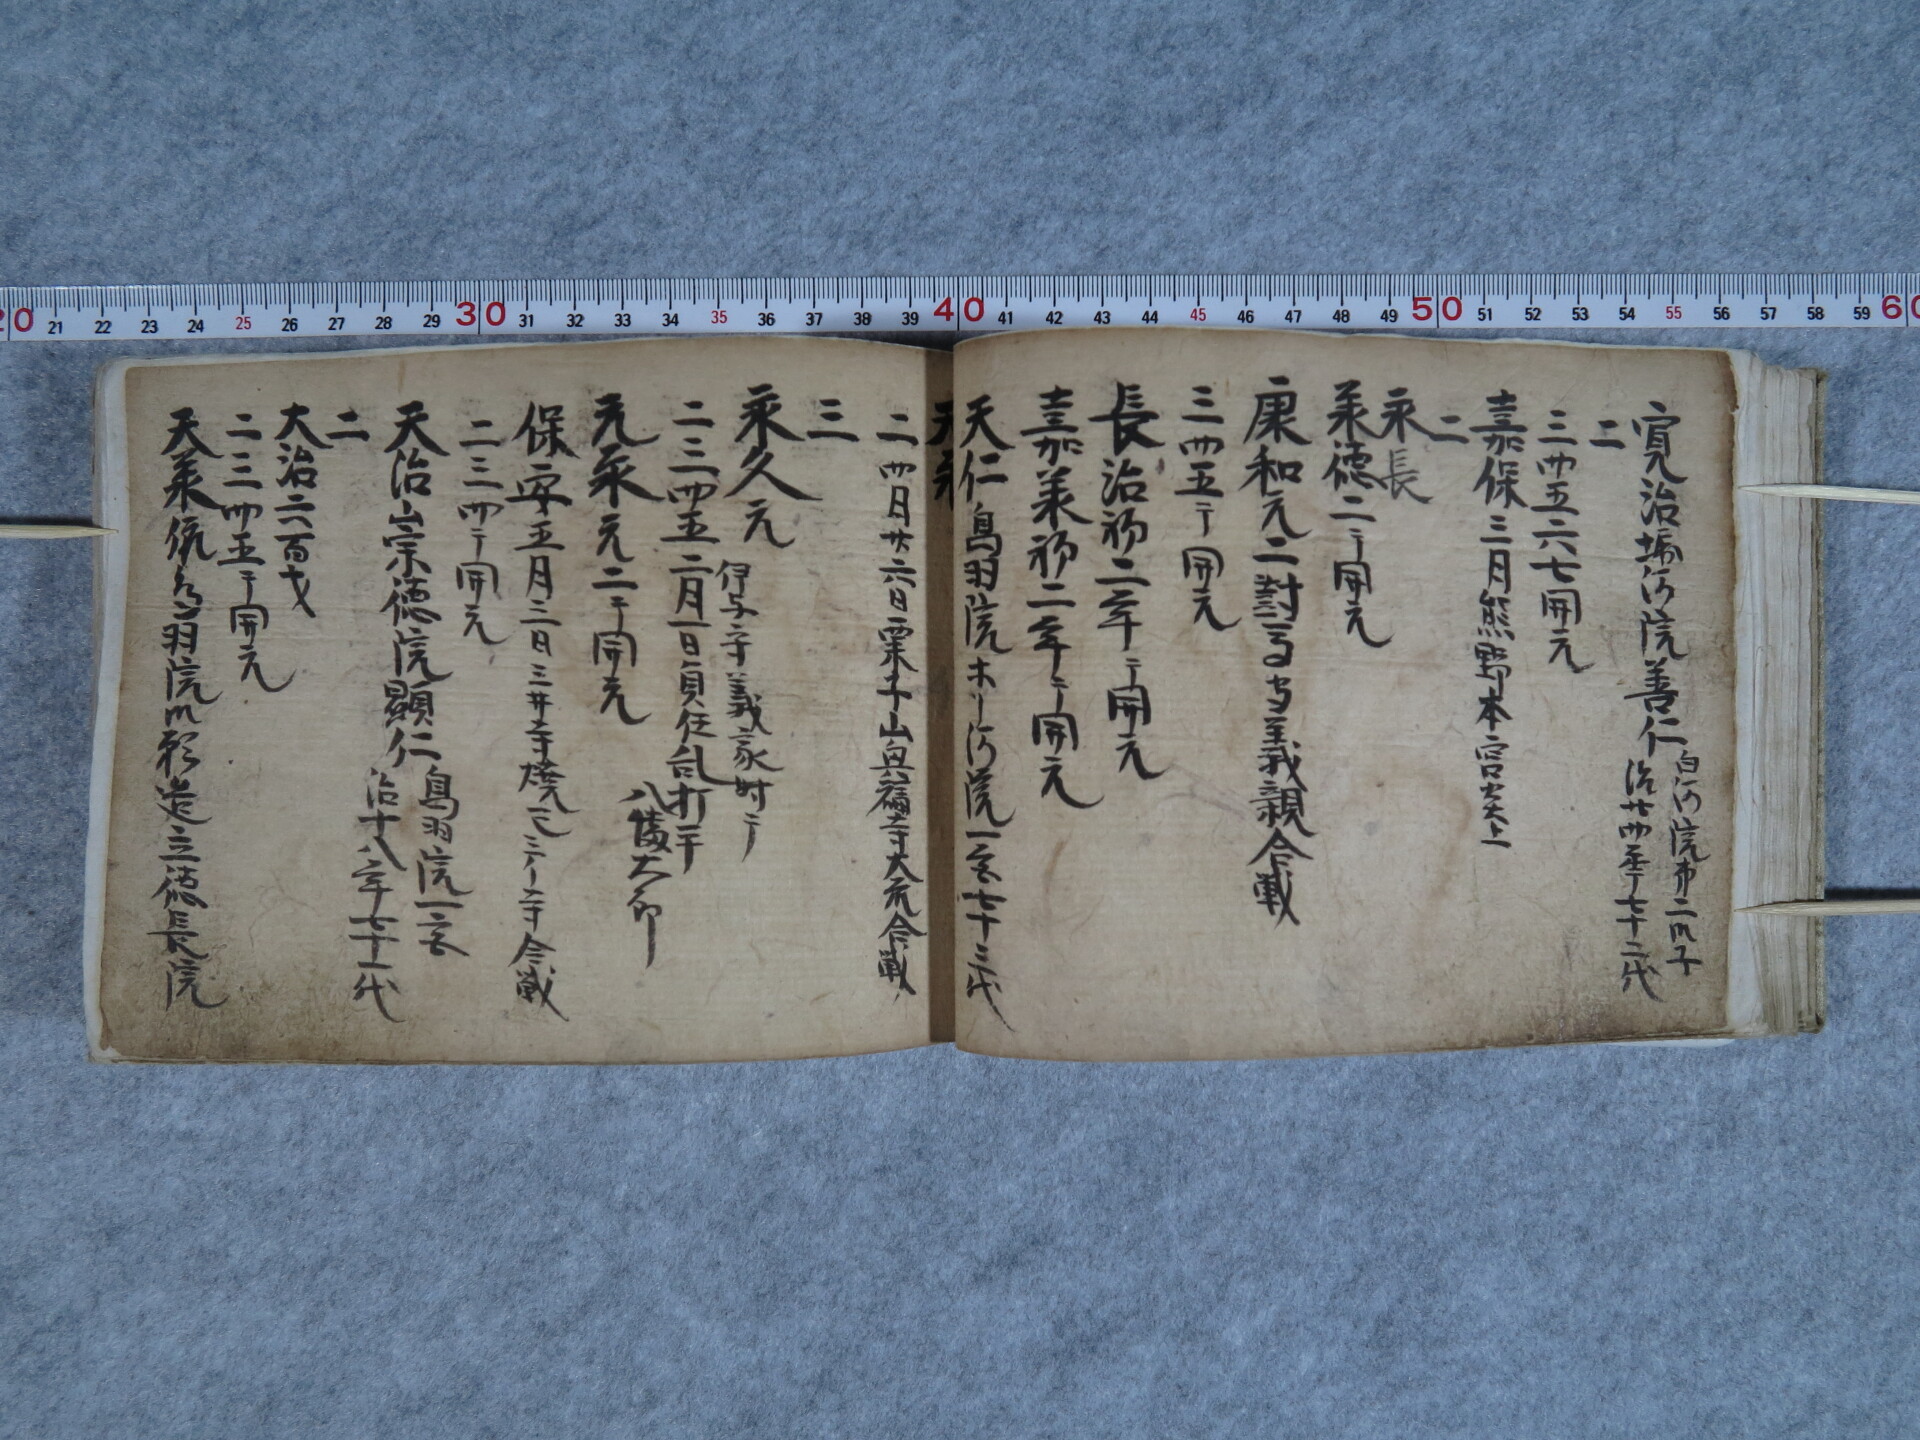 寛治堀河院善仁
白河院第二御子
治廿四年七十二代
二
三四五六七開元
嘉保三月熊野本宮炎上
二
永長
承徳二ニテ開元
康和元二対馬守義親合戦
三四五ニテ開元
長治初二年ニテ開元
嘉承初二年ニテ開元
天仁鳥羽院ホリ河院一宮七十三代
天永
二四月廿六日栗子山興福寺大衆合戦
三
永久元
伊与守義家対テ
二三四五二月一日貞任乱打平
八幡大
元永元二ニテ開元
保安五月三日三井寺焼
合戦
二三四ニテ開元
天治崇徳院顕仁
鳥羽院一宮
治十八年七十一代
二
大治六百
二三四五ニテ開元
天承
羽院御願造立徳長院
20 21 22 23 24 25 26 27 28 29 30 31 32 33 34 35 36 37 38 39 40 41 42 43 44 45 46 47 48 49 50 51 52 53 54 55 56 57 58 59 60